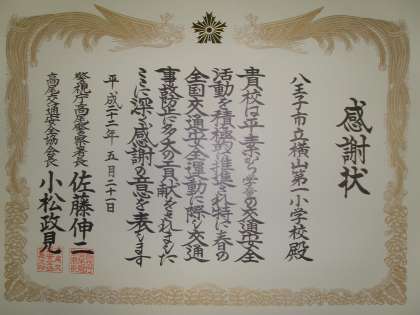 感謝状
八王子市立横山第一小学校殿
貴校は平素から学童の交通安全
活動を積極的に推進され特に春の
全国交通安全運動に際し交通
事故防止に多大の貢献をされました
ここに深く感謝の意を表します
平成二十二年五月二十一日
警視庁高尾警察署長 佐藤伸二
高尾交通安全協会長 小松政見